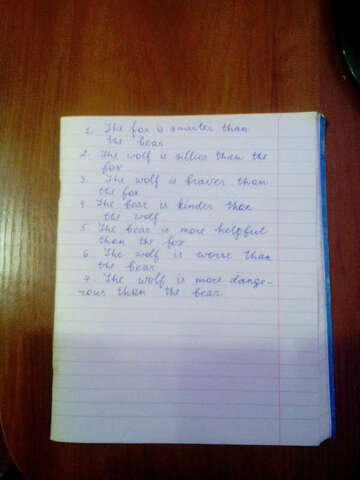 1. The fox is smarter than
the bear
2. The wolf is sillier than the
fox
3. The wolf is braver than
the fox
4. The bear is kinder than
the wolf
5. The bear is more helpful
than the fox
6. The wolf is worse than
the bear
7. The wolf is more dange-
rous than the bear